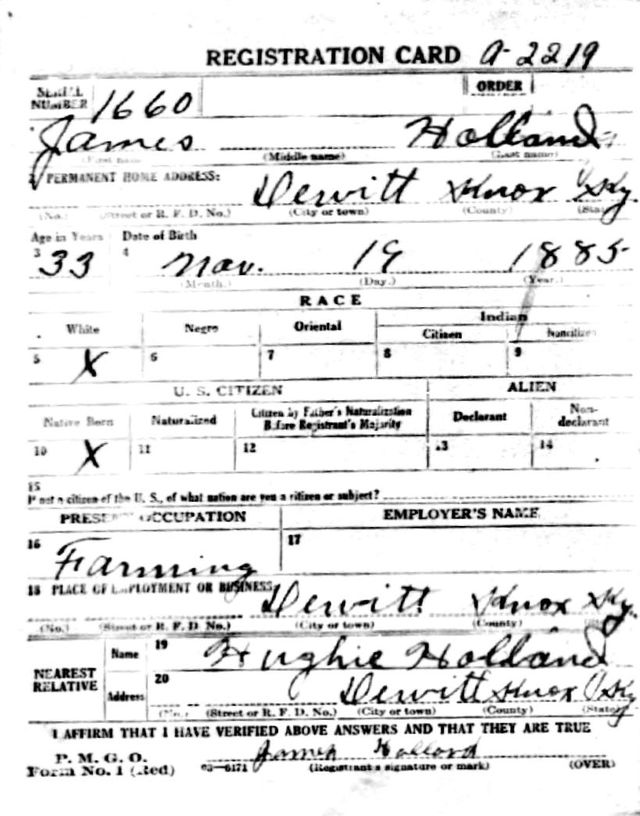 REGISTRATION CARD A-2219
SERIAL NUMBER 1660 ORDER
James Holland
(First name) (Middle name) (Last name)
2 PERMANENT HOME ADDRESS:
Dewitt Knox Ky.
(No.) (Street or R. F. D. No.) (City or town) (County) (State)
Age in Years Date of Birth
3 33 4 Nov. 19 1885
(Month.) (Day.) (Year.)
RACE
White Negro Oriental Indian
Citizen Noncitizen
5 X 6 7 8 9
U. S. CITIZEN ALIEN
Native Born Naturalized Citizen by Father's Naturalization Before Registrant's Majority Declarant Non-declarant
10 X 11 12 13 14
15
If not a citizen of the U. S., of what nation are you a citizen or subject?
PRESENT OCCUPATION EMPLOYER'S NAME
16 Farming 17
18 PLACE OF EMPLOYMENT OR BUSINESS
Dewitt Knox Ky.
(No.) (Street or R. F. D. No.) (City or town) (County) (State)
NEAREST RELATIVE Name 19 Hughie Holland
Address 20 Dewitt Knox Ky
(No.) (Street or R. F. D. No.) (City or town) (County) (State)
I AFFIRM THAT I HAVE VERIFIED ABOVE ANSWERS AND THAT THEY ARE TRUE
P. M. G. O.
Form No. 1 (Red) 03-6171 James Hollord
(Registrant's signature or mark) (OVER)